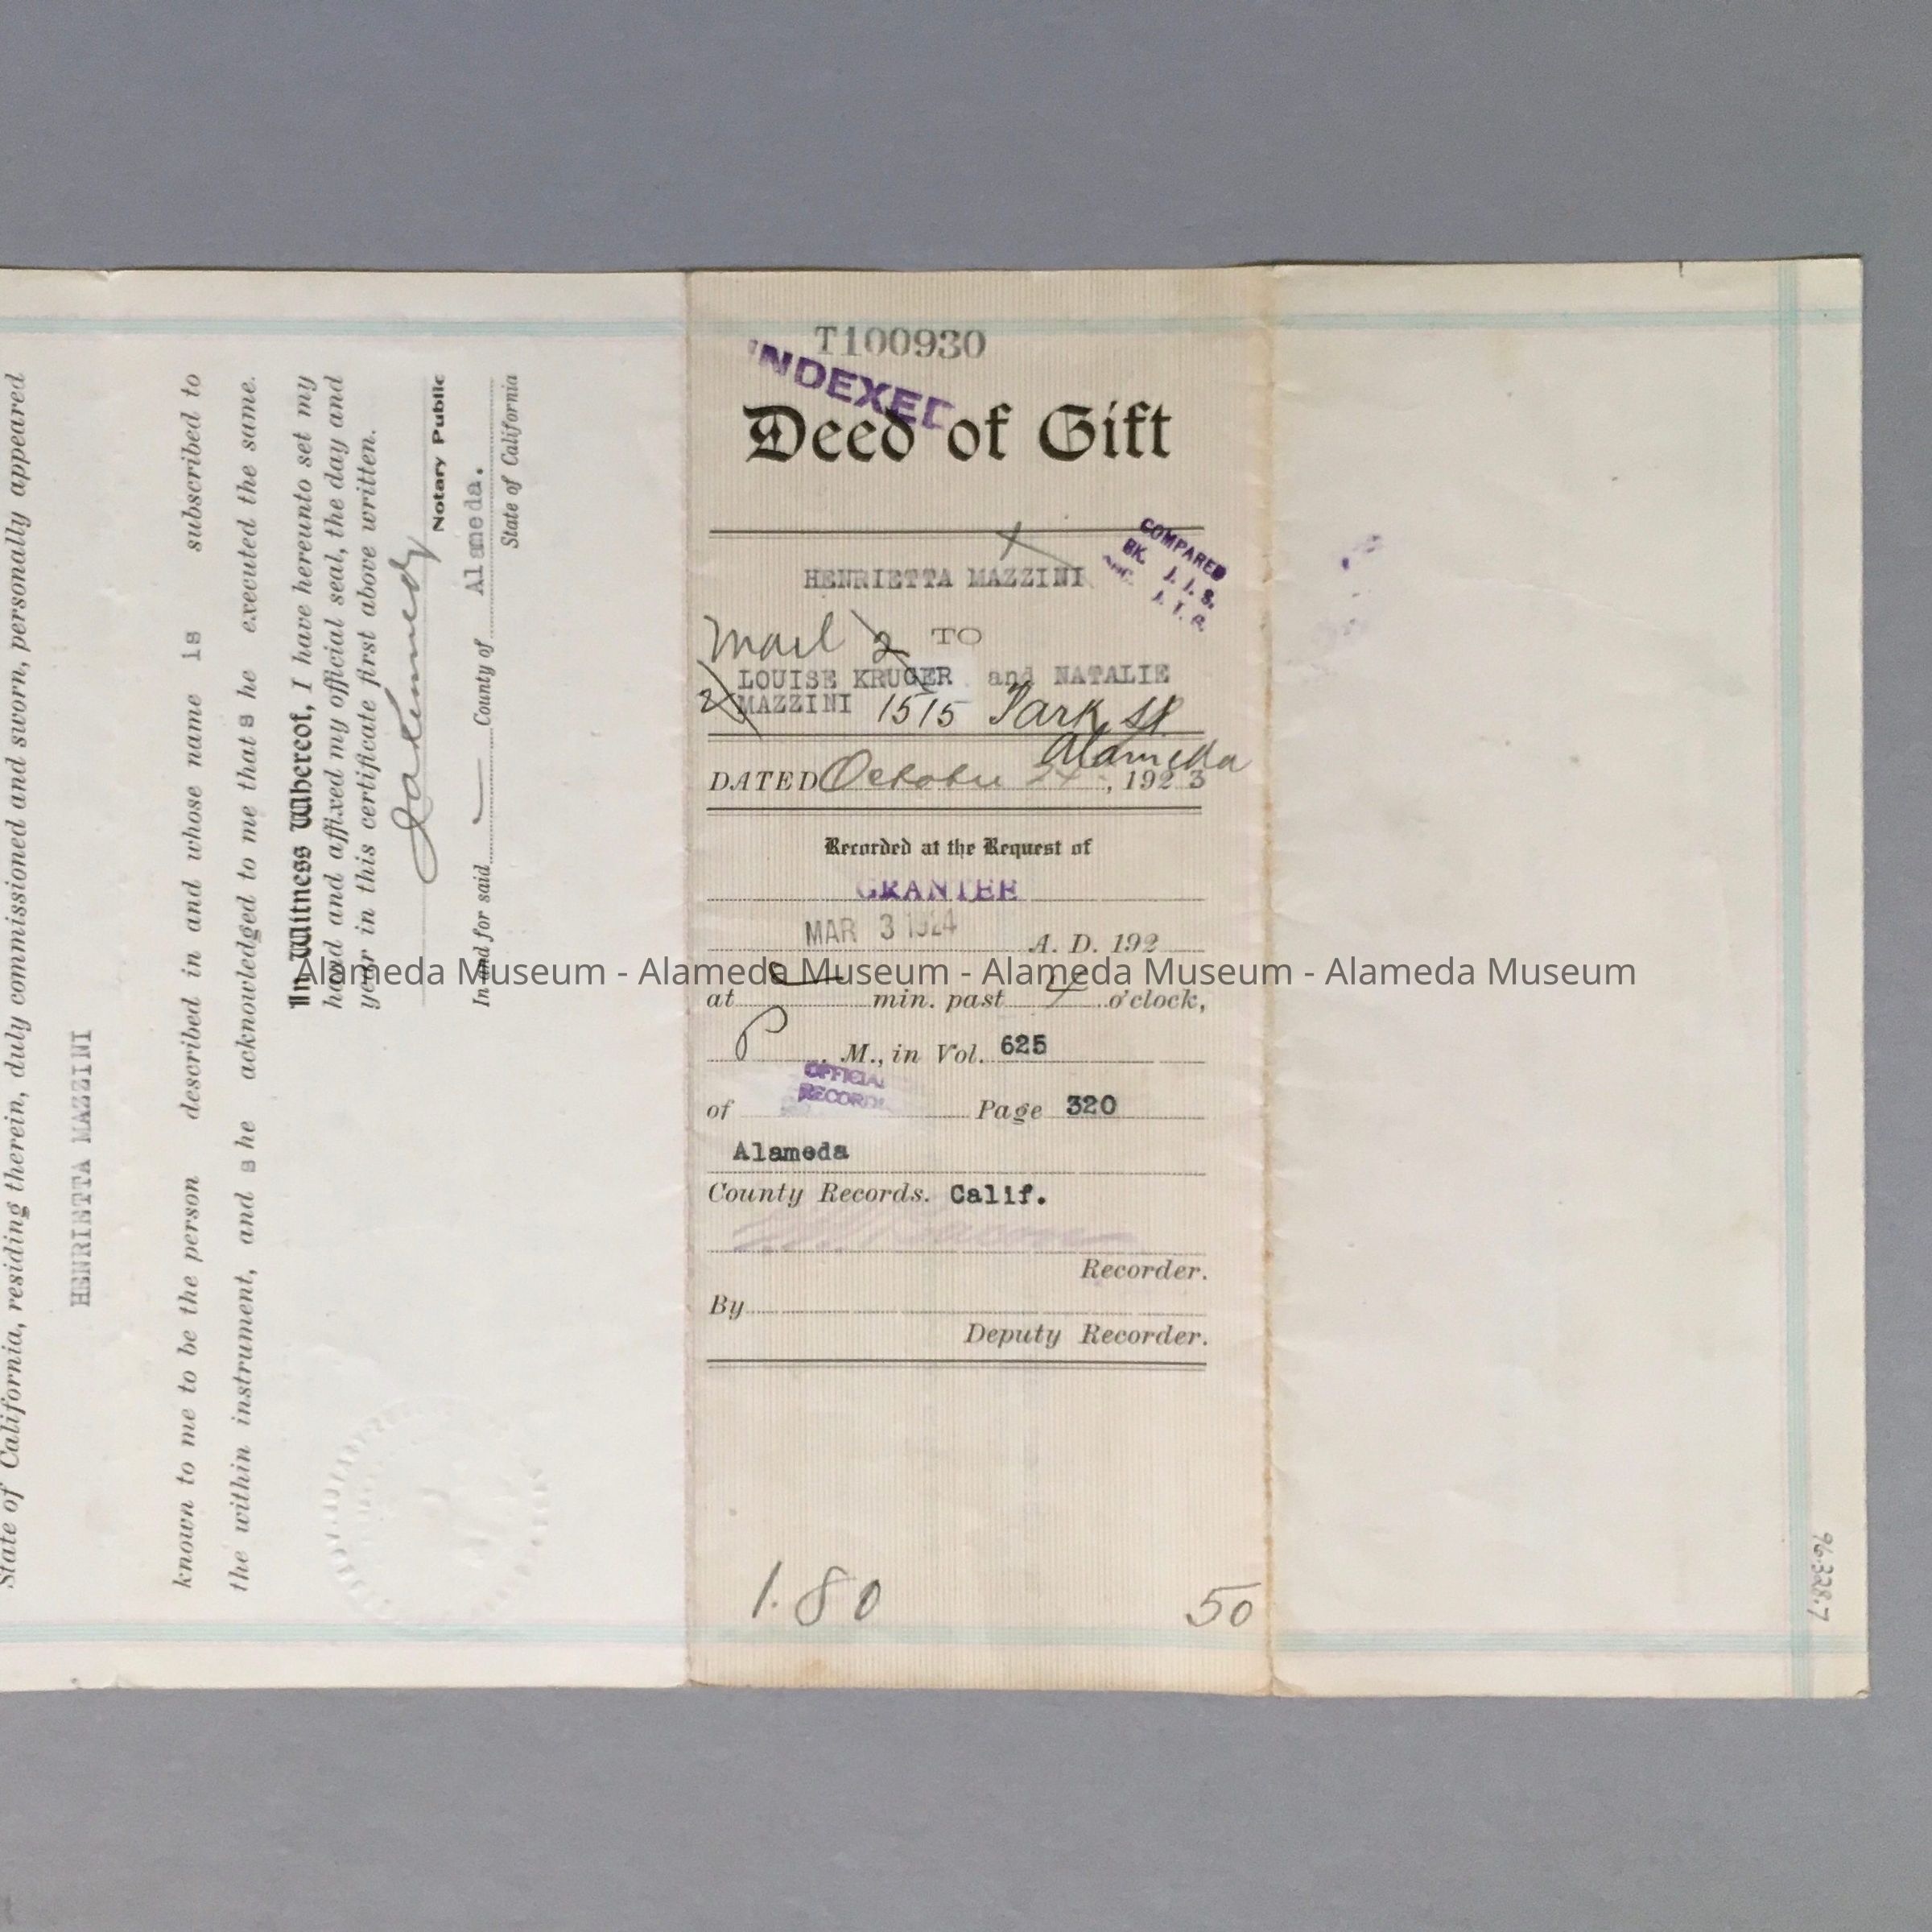 State of California, residing therein, duly commissioned and sworn, personally appeared
HENRIETTA MAZZINI
known to me to be the person described in and whose name is subscribed to
the within instrument, and she acknowledged to me that she executed the same.
In Witness Whereof, I have hereunto set my
hand and affixed my official seal, the day and
year in this certificate first above written.
Notary Public
In and for said County of Alameda.
State of California
T100930
INDEXED
Deed of Gift
COMPARED
BK. J. J. S.
HENRIETTA MAZZINI
Mail 2 TO
LOUISE KRUGER and NATALIE
2 MAZZINI 1515 Park St
Alameda
DATED October 24, 1923
Recorded at the Request of
GRANTEE
MAR 3 1924 A. D. 192
Alameda Museum - Alameda Museum - Alameda Museum - Alameda Museum
at min. past 4 o'clock,
P. M., in Vol. 625
OFFICIAL
RECORDS
of Page 320
Alameda
County Records. Calif.
Recorder.
By
Deputy Recorder.
1.80 50
96.328.7